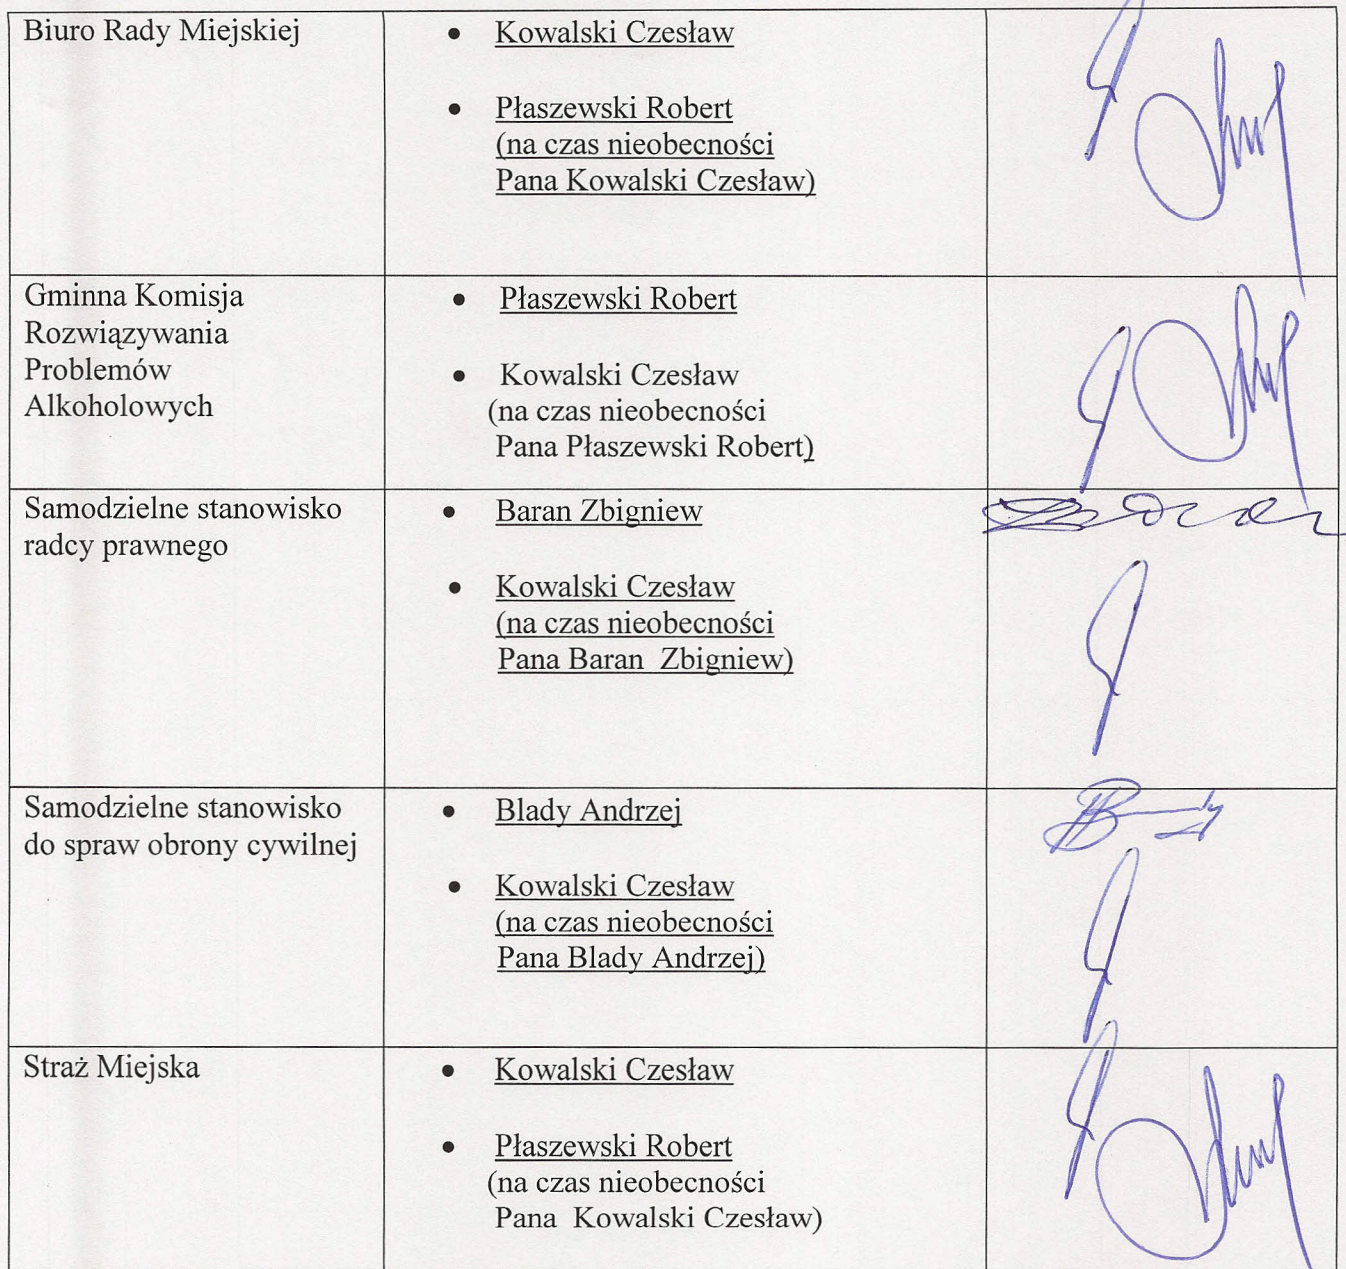 Biuro Rady Miejskiej
• Kowalski Czesław
• Płaszewski Robert
(na czas nieobecności
Pana Kowalski Czesław)
Gminna Komisja
Rozwiązywania
Problemów
Alkoholowych
• Płaszewski Robert
• Kowalski Czesław
(na czas nieobecności
Pana Płaszewski Robert)
Samodzielne stanowisko
radcy prawnego
• Baran Zbigniew
• Kowalski Czesław
(na czas nieobecności
Pana Baran  Zbigniew)
Samodzielne stanowisko
do spraw obrony cywilnej
• Blady Andrzej
• Kowalski Czesław
(na czas nieobecności
Pana Blady Andrzej)
Straż Miejska
• Kowalski Czesław
• Płaszewski Robert
(na czas nieobecności
Pana  Kowalski Czesław)